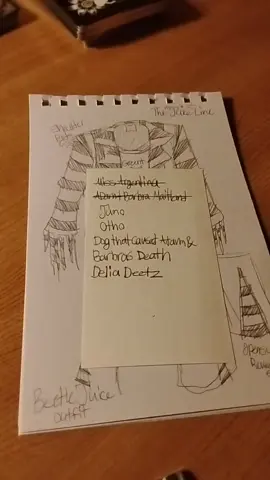 The Juice Line
Secret
Miss Argentina
Adam & Barbra Maitland
Juno
Otho
Dog that caused Adam &
Barbras Death
Delia Deetz
Beetle Juice
outfit